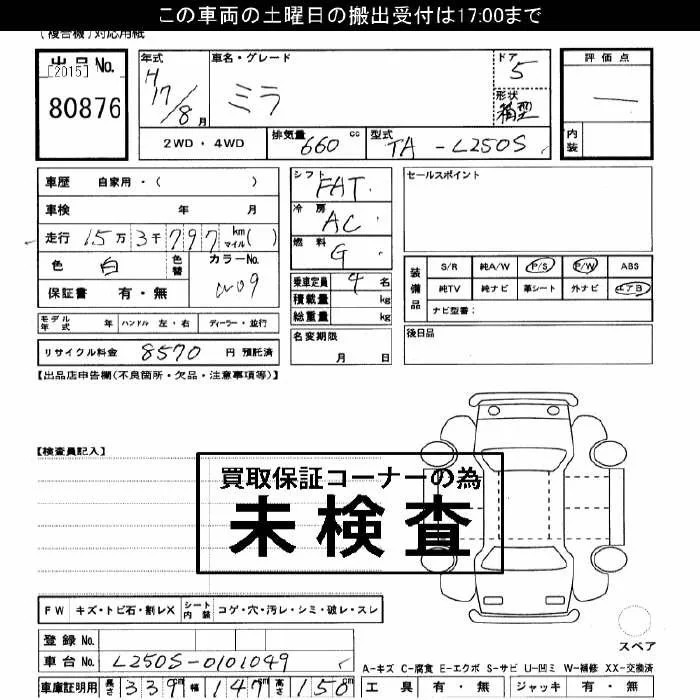 この車両の土曜日の搬出受付は17:00まで
(複合機)対応用紙
出品No.
[2015]
80876
年式
H17/8月
車名・グレード
ミラ
ドア
5
形状
箱型
評価点
―
内装
2WD・4WD
排気量
660cc
型式
TA-L250S
車歴 自家用・( )
車検 年 月
走行 15万3千797 km マイル( )
色 白 色替
カラーNo.
W09
保証書 有・無
シフト
FAT
冷房
AC
燃料
G
乗車定員 4名
積載量 kg
総重量 kg
セールスポイント
装備品
S/R 純A/W P/S P/W ABS
純TV 純ナビ 革シート 外ナビ エアB
ナビ型番:
モデル年式 年 ハンドル 左・右 ディーラー・並行
リサイクル料金 8570 円 預託済
名変期限
月 日
後日品
【出品店申告欄(不良箇所・欠品・注意事項等)】
【検査員記入】
買取保証コーナーの為
未検査
FW キズ・トビ石・割レX シート内装 コゲ・穴・汚レ・シミ・破レ・スレ
スペア
登録No.
車台No. L250S-0101049
A-キズ C-腐食 E-エクボ S-サビ U-凹ミ W-補修 XX-交換済
車庫証明用 長さ 339cm 幅 147cm 高さ 150cm
工具 有・無 ジャッキ 有・無